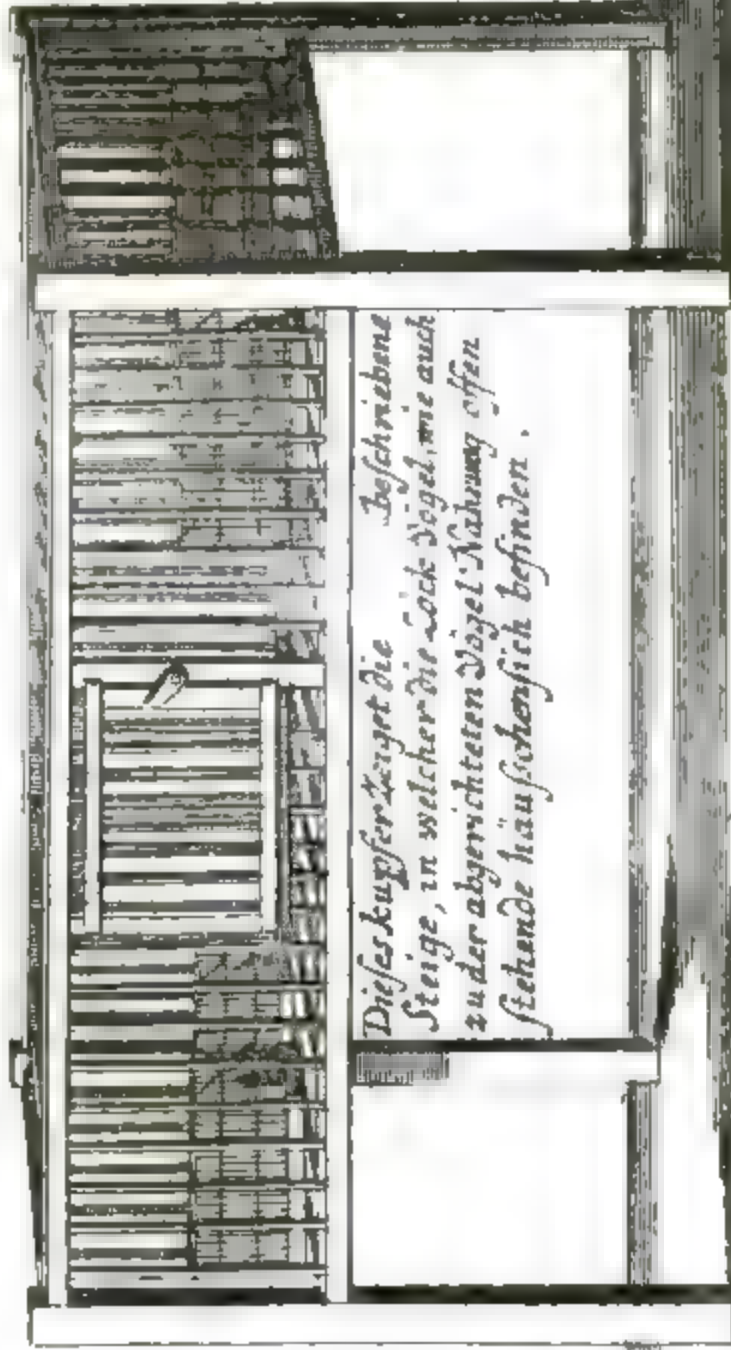 Dieses kupfer Zeiget die beschriebene
Steige, in welcher die Lock Vögel, wie auch
zu der abgerichteten Vögel Nahrung offen
stehende häuschen sich befinden.